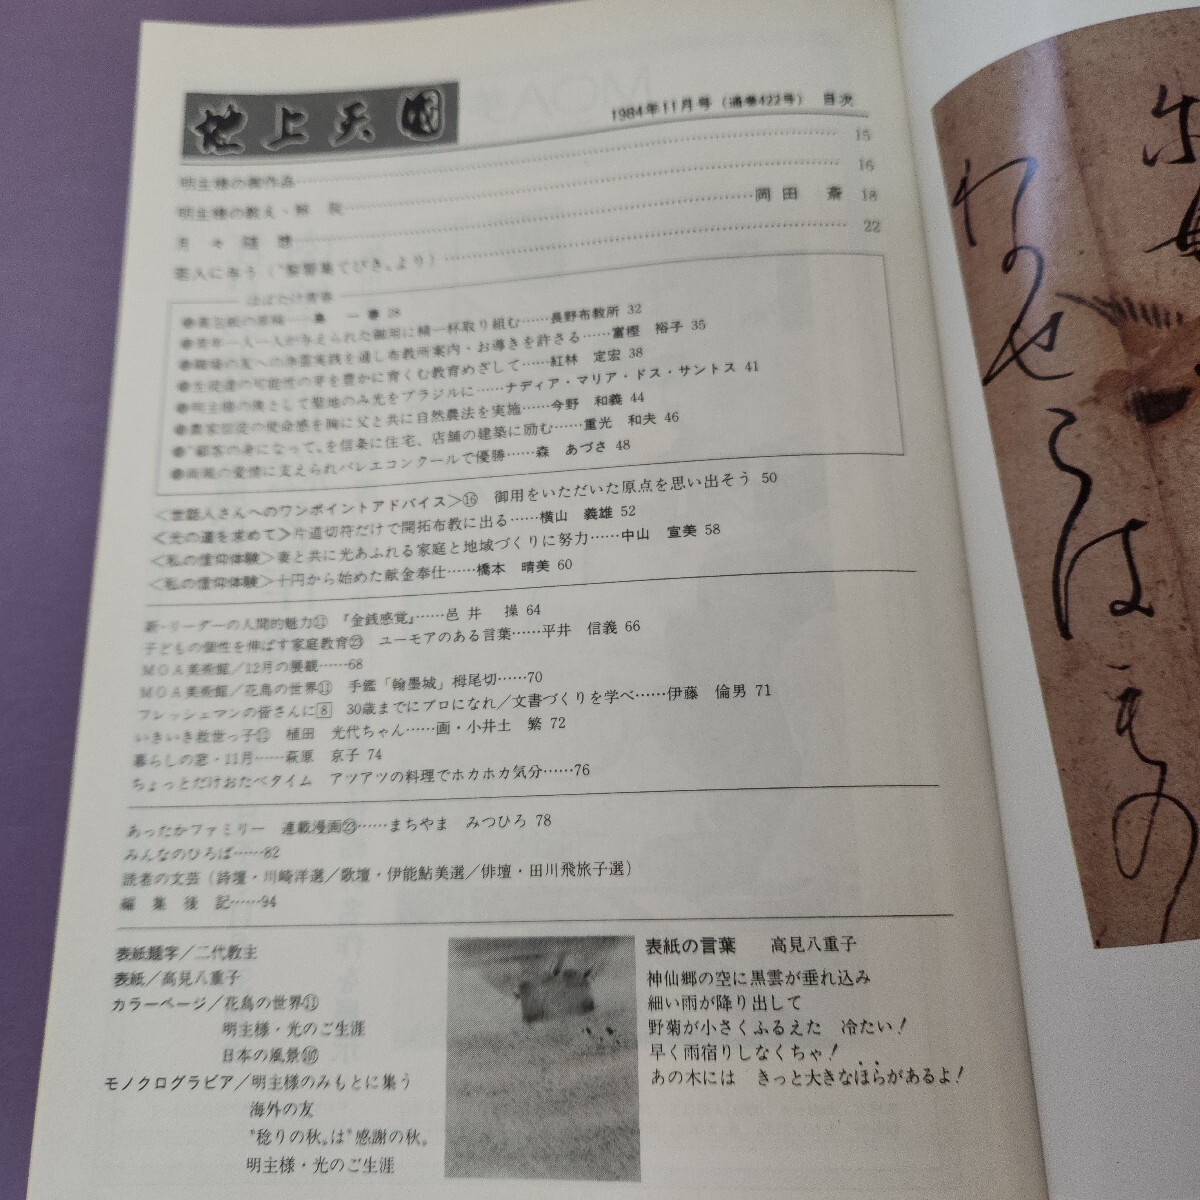 地上天国
1984年11月号（通巻422号） 目次
明主様の御作品 15
明主様の教え・解説 16
月々随想 岡田 斎 18
恋人に与う（〝聖響集てびき〟より） 22
はばたけ青春
28
●青年一人一人が与えられた御用に精一杯取り組む……長野布教所 32
●職場の友への浄霊実践を通し布教所案内・お導きを許さる……富樫 裕子 35
●生徒達の可能性の芽を豊かに育くむ教育めざして……紅林 定宏 38
●明主様の僕として聖地のみ光をブラジルに……ナディア・マリア・ドス・サントス 41
●農家信徒の使命感を胸に父と共に自然農法を実施……今野 和義 44
●〝顧客の身になって〟を信条に住宅、店舗の建築に励む……重光 和夫 46
●両親の愛情に支えられバレエコンクールで優勝……森 あづさ 48
〈世話人さんへのワンポイントアドバイス〉⑯ 御用をいただいた原点を思い出そう 50
〈光の道を求めて〉片道切符だけで開拓布教に出る……横山 義雄 52
〈私の信仰体験〉妻と共に光あふれる家庭と地域づくりに努力……中山 宣美 58
〈私の信仰体験〉十円から始めた献金奉仕……橋本 晴美 60
新・リーダーの人間的魅力⑪ 『金銭感覚』……邑井 操 64
子どもの個性を伸ばす家庭教育㉓ ユーモアのある言葉……平井 信義 66
MOA美術館／12月の展観……68
MOA美術館／花鳥の世界⑪ 手鑑「翰墨城」栂尾切……70
フレッシュマンの皆さんに8 30歳までにプロになれ／文書づくりを学べ……伊藤 倫男 71
いきいき救世っ子⑪ 植田 光代ちゃん……画・小井土 繁 72
暮らしの窓・11月……萩原 京子 74
ちょっとだけおたべタイム アツアツの料理でホカホカ気分……76
あったかファミリー 連載漫画㉓……まちやま みつひろ 78
みんなのひろば……82
読者の文芸（詩壇・川崎洋選／歌壇・伊能鮎美選／俳壇・田川飛旅子選）
編集後記……94
表紙題字／二代教主
表紙／高見八重子
カラーページ／花鳥の世界⑪
明主様・光のご生涯
日本の風景⑩⓪
モノクログラビア／明主様のみもとに集う
海外の友
〝稔りの秋〟は〝感謝の秋〟
明主様・光のご生涯
表紙の言葉 高見八重子
神仙郷の空に黒雲が垂れ込み
細い雨が降り出して
野菊が小さくふるえた 冷たい！
早く雨宿りしなくちゃ！
あの木には きっと大きなほらがあるよ！